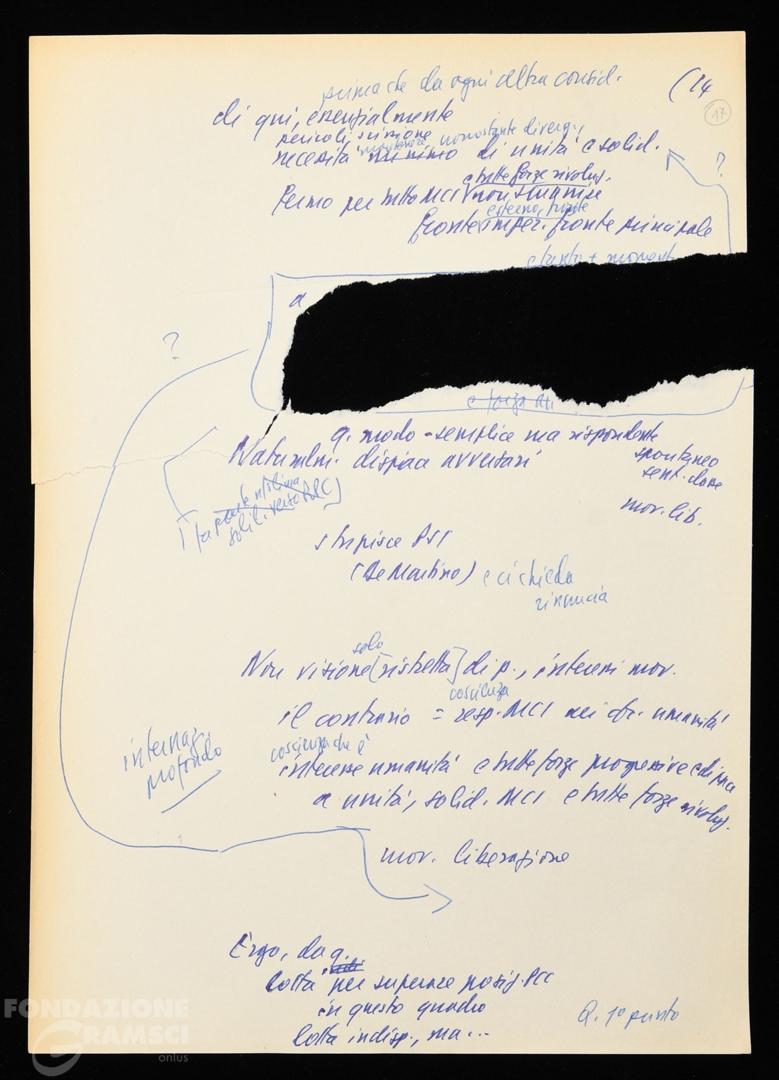 prima che da ogni altra consid.
(14
17
di qui, essenzialmente
pericoli scissione
nonostante diverg.,
necessità minimo di unità e solid.
?
e tutte forze rivoluz.
Perno per tutto MCI
fronte imper. fronte principale
esterno,
e tanto + moment
a
?
e forza
q. modo - semplice ma rispondente
Naturalm. dispiace avversari
spontaneo
sent. dove
mov. lib.
solid. verso
stupisce PSI
(De Martino) e ci chieda
rinuncia
solo
Non visione [ristretta] di p., interessi mov.
coscienza
il contrario = resp. MCI nei cfr. umanità
coscienza che è
internaz.
profondo
interesse umanità e tutte forze progressive e di pace
a unità, solid. MCI e tutte forze rivoluz.
mov. liberazione
Ergo, da q.
lotta per superare posiz. PCC
in questo quadro
lotta indisp., ma...
Q. 1° punto
FONDAZIONE
GRAMSCI
onlus